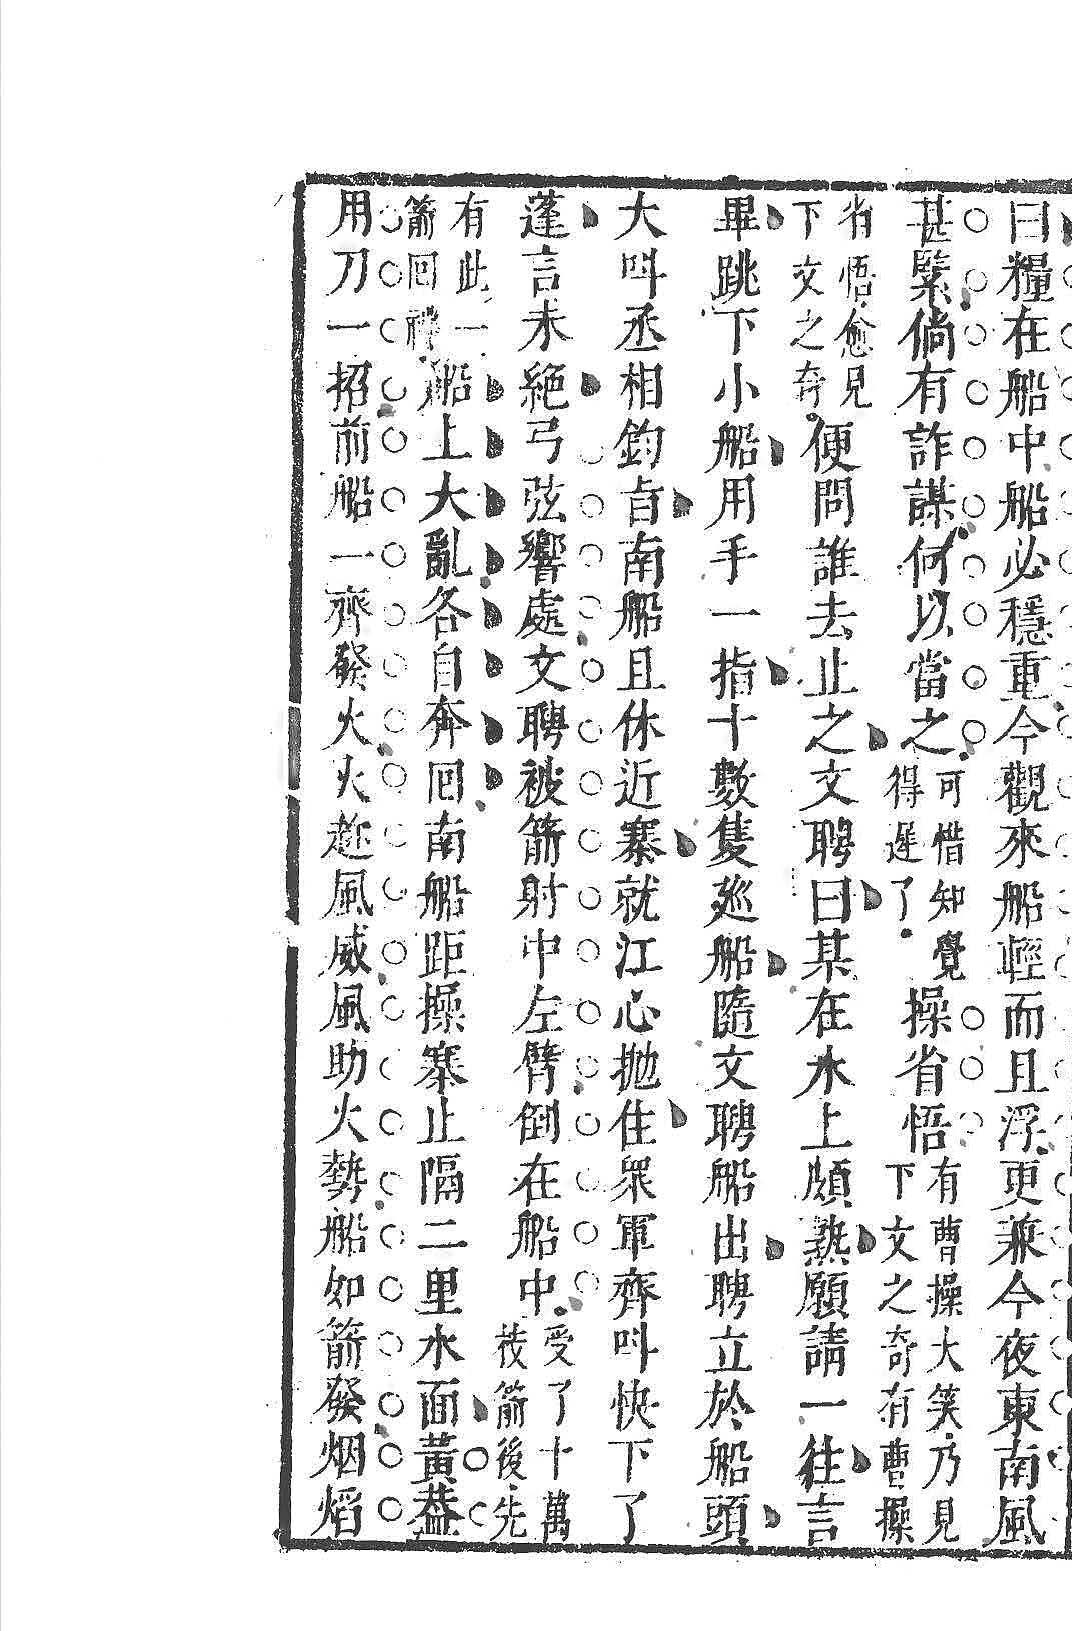 曰糧在船中船必穩重今觀來船輕而且浮更兼今夜東南風
甚緊倘有詐謀何以當之可惜知覺得遲了操省悟有曹操大笑乃見下文之奇有曹操
省悟愈見下文之奇便問誰去止之文聘曰某在水上頗熟願請一往言
畢跳下小船用手一指十數隻廵船隨文聘船出聘立於船頭
大呌丞相鈞旨南船且休近寨就江心抛住衆軍齊呌快下了
蓬言未絕弓弦響處文聘被箭射中左臂倒在船中受了十萬枝箭後先
有此一箭回禮船上大亂各自奔回南船距操寨止隔二里水面黃葢
用刀一招前船一齊發火火趂風威風助火勢船如箭發烟焰